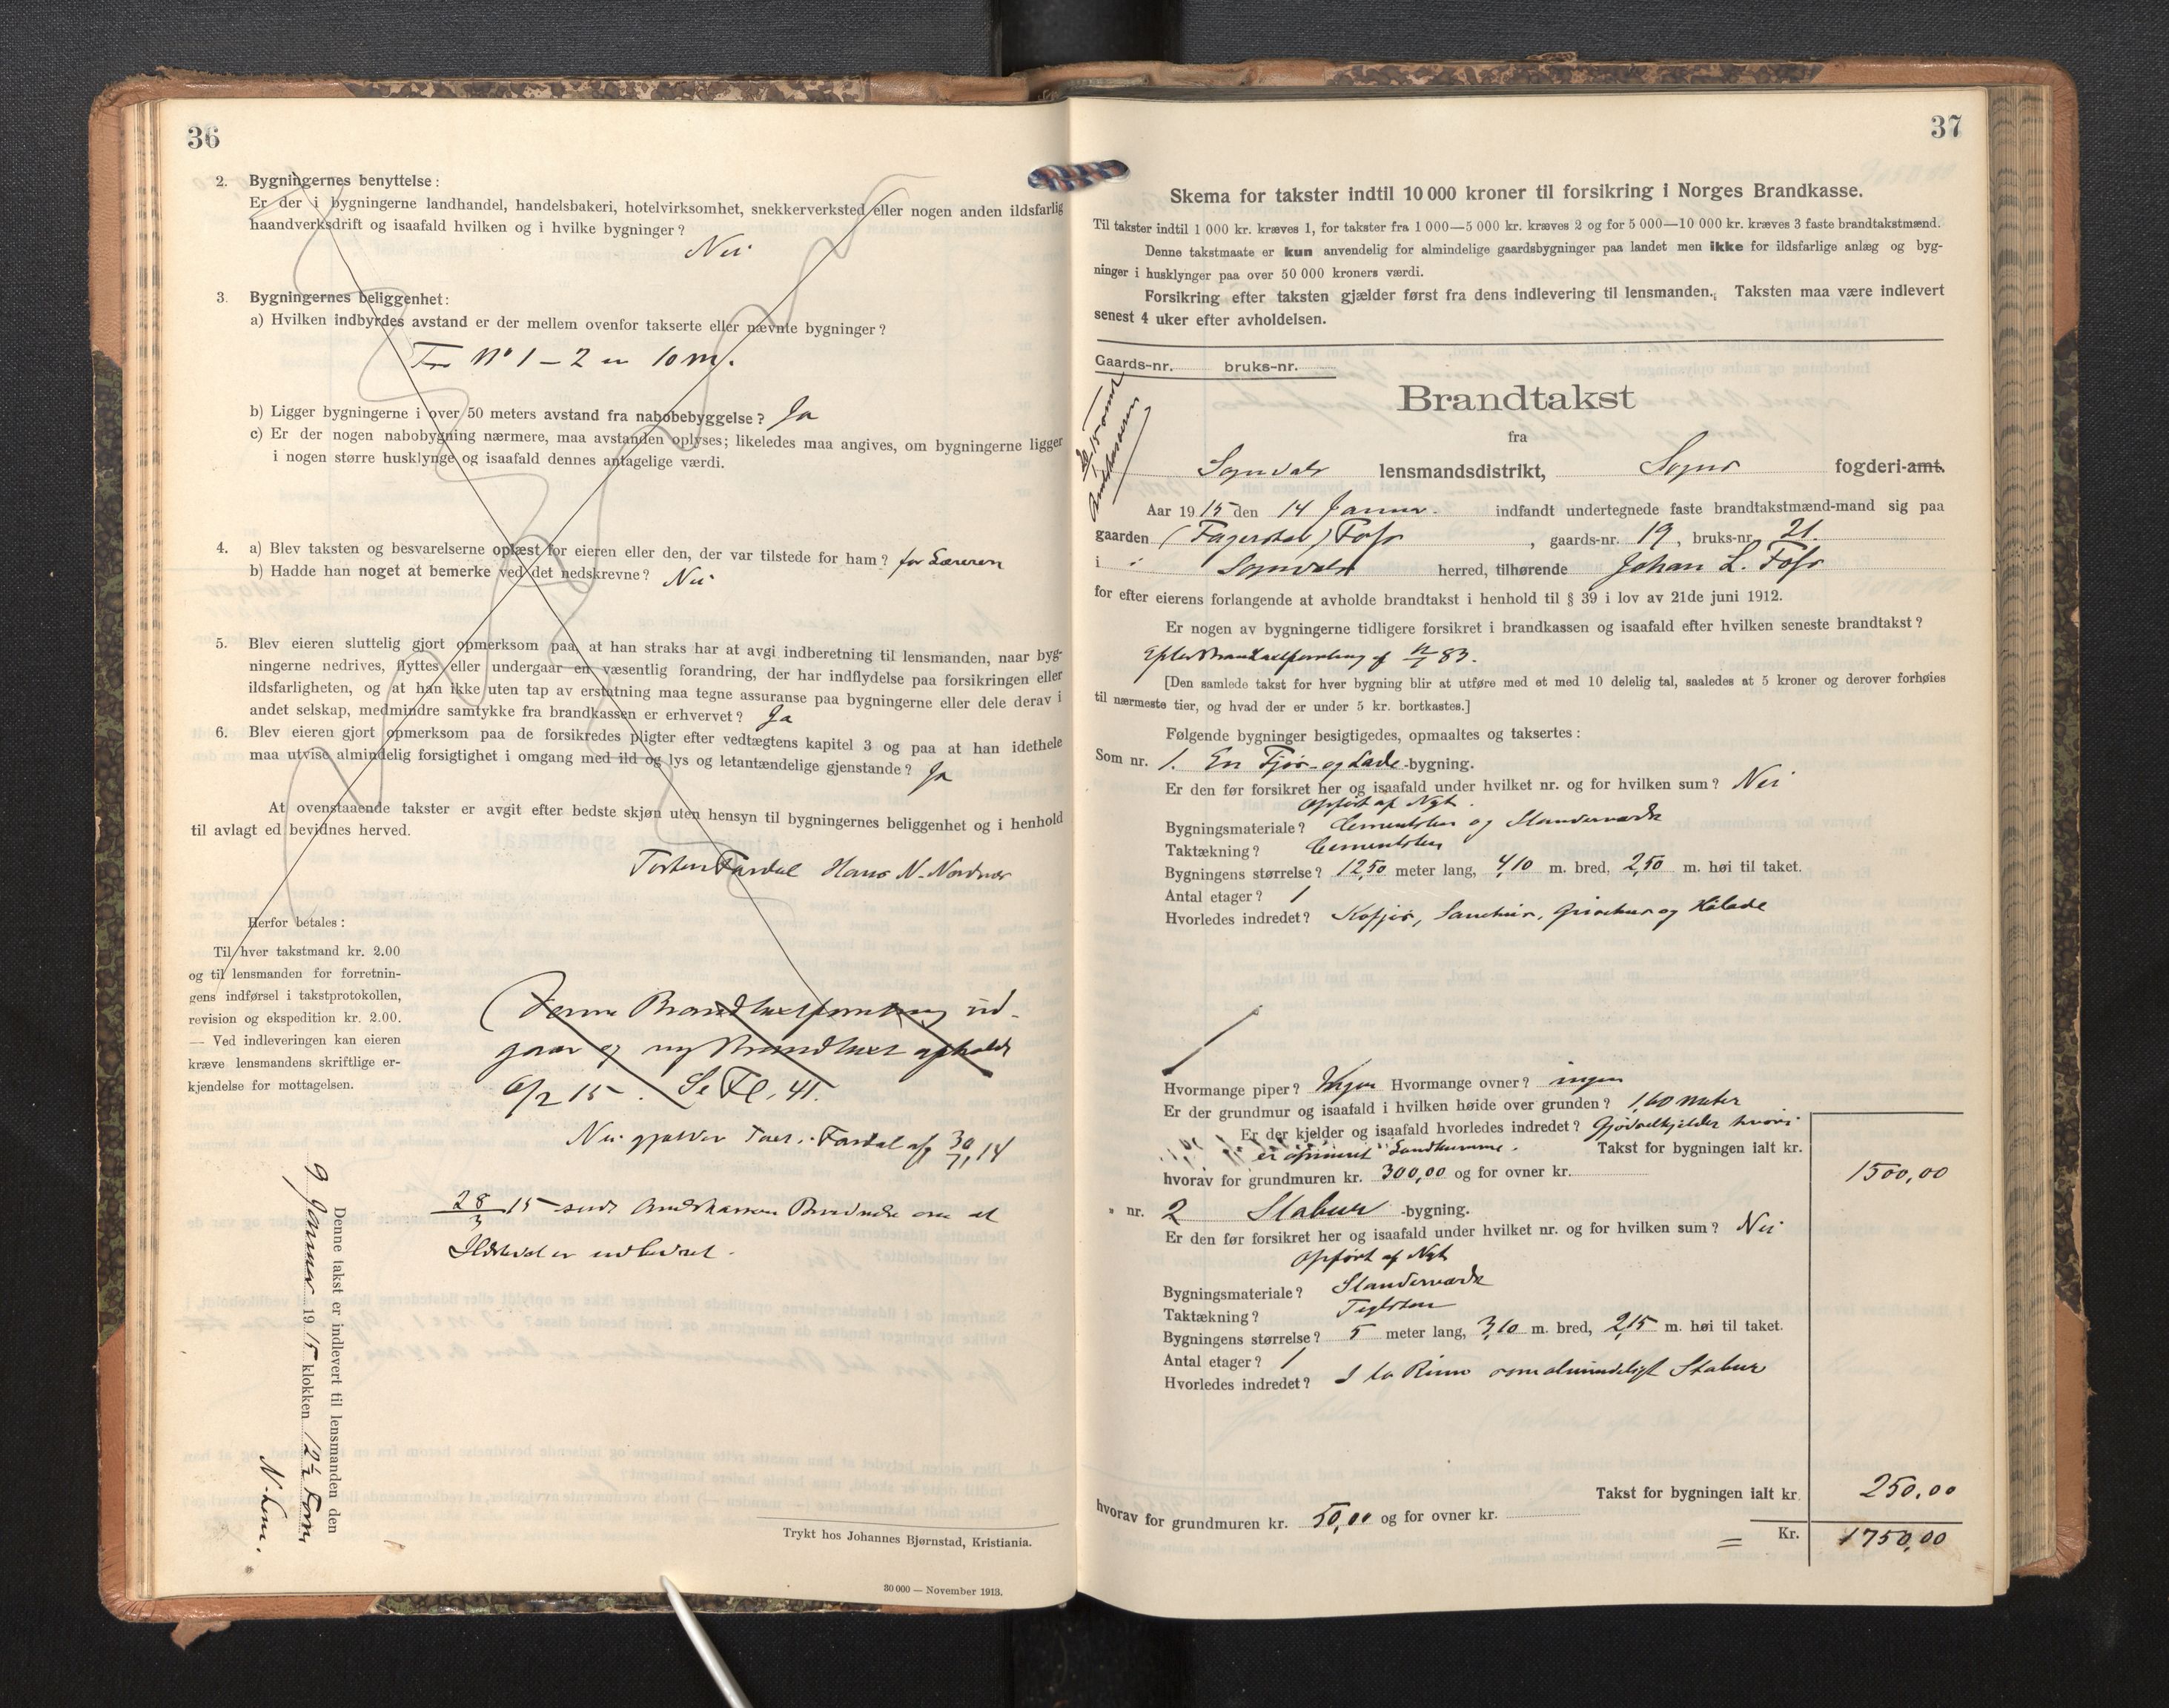 36
2. Bygningernes benyttelse:
Er der i bygningerne landhandel, handelsbakeri, hotelvirksomhet, snekkerverksted eller nogen anden ildsfarlig
haandverksdrift og isaafald hvilken og i hvilke bygninger?
Nei
3. Bygningernes beliggenhet:
a) Hvilken indbyrdes avstand er der mellem ovenfor takserte eller nævnte bygninger?
Fra No 1 – 2 er 10 m.
b) Ligger bygningerne i over 50 meters avstand fra nabobebyggelse? Ja
c) Er der nogen nabobygning nærmere, maa avstanden oplyses; likeledes maa angives, om bygningerne ligger
i nogen større husklynge og isaafald dennes antagelige værdi.
4. a) Blev taksten og besvarelserne oplæst for eieren eller den, der var tilstede for ham? for Læreren
b) Hadde han noget at bemerke ved det nedskrevne? Nei
5. Blev eieren sluttelig gjort opmerksom paa, at han straks har at avgi indberetning til lensmanden, naar byg-
ningerne nedrives, flyttes eller undergaar en væsentlig forandring, der har indflydelse paa forsikringen eller
ildsfarligheten, og at han ikke uten tap av erstatning maa tegne assuranse paa bygningerne eller dele derav i
andet selskap, medmindre samtykke fra brandkassen er erhvervet? Ja
6. Blev eieren gjort opmerksom paa de forsikredes pligter efter vedtægtens kapitel 3 og paa at han idethele
maa utvise almindelig forsigtighet i omgang med ild og lys og letantændelige gjenstande? Ja
At ovenstaaende takster er avgit efter bedste skjøn uten hensyn til bygningernes beliggenhet og i henhold
til avlagt ed bevidnes herved.
Torsten Fardal Hans N. Nordnes
Herfor betales:
Til hver takstmand kr. 2.00
og til lensmanden for forretnin-
gens indførsel i takstprotokollen,
revision og ekspedition kr. 2.00.
— Ved indleveringen kan eieren
kræve lensmandens skriftlige er-
kjendelse for mottagelsen.
Denne Brandtaxtforretning ud-
gaar og ny Brandtaxt afholdt
6/2 15. Se Fl. 41.
Nei gjælder Taxt. Fardal af 30/11 14
28/3 15 sendt Amtskassen om at
Ildstedet er udbedret.
Denne takst er indlevert til lensmanden den
9 Januar 1915 klokken 12½ Form
Trykt hos Johannes Bjørnstad, Kristiania.
30 000 — November 1913.
37
Skema for takster indtil 10 000 kroner til forsikring i Norges Brandkasse.
Til takster indtil 1 000 kr. kræves 1, for takster fra 1 000—5 000 kr. kræves 2 og for 5 000—10 000 kr. kræves 3 faste brandtakstmænd.
Denne takstmaate er kun anvendelig for almindelige gaardsbygninger paa landet men ikke for ildsfarlige anlæg og byg-
ninger i husklynger paa over 50 000 kroners værdi.
Forsikring efter taksten gjælder først fra dens indlevering til lensmanden. Taksten maa være indlevert
senest 4 uker efter avholdelsen.
Gaards-nr. bruks-nr.
Brandtakst
fra
Amtskassen
Sogndals lensmandsdistrikt, Sogns fogderi-amt.
Aar 1915 den 14 Januar. indfandt undertegnede faste brandtakstmænd-mand sig paa
gaarden (Fagerdal) Foss, gaards-nr. 19, bruks-nr. 21.
i Sogndals herred, tilhørende Johan L. Foss
for efter eierens forlangende at avholde brandtakst i henhold til § 39 i lov av 21de juni 1912.
Er nogen av bygningerne tidligere forsikret i brandkassen og isaafald efter hvilken seneste brandtakst?
Efter Brandtaxtforretning af 83.
[Den samlede takst for hver bygning blir at utføre med et med 10 delelig tal, saaledes at 5 kroner og derover forhøies
til nærmeste tier, og hvad der er under 5 kr. bortkastes.]
Følgende bygninger besigtigedes, opmaaltes og taksertes:
Som nr. 1. En Fjøs- og Lade-bygning.
Er den før forsikret her og isaafald under hvilket nr. og for hvilken sum? Nei
Opført af Nyt.
Bygningsmateriale? Cementsten og Standerværk
Taktækning? Cementsten
Bygningens størrelse? 12,50 meter lang, 4,10 m. bred, 2,50 m. høi til taket.
Antal etager? 1
Hvorledes indredet? Kofjøs, Sauehus, Grisehus og Hölade
Hvormange piper? Ingen Hvormange ovner? ingen
Er der grundmur og isaafald i hvilken høide over grunden? 1,60 meter
Er der kjelder og isaafald hvorledes indredet? Gjødselkjelder hvori
er opmuret Landkumme. Takst for bygningen ialt kr.
hvorav for grundmuren kr. 300,00 og for ovner kr. 1500,00
" nr. 2 Stabur -bygning.
Er den før forsikret her og isaafald under hvilket nr. og for hvilken sum? Nei
Opført af Nyt
Bygningsmateriale? Standerværk
Taktækning? Teglsten
Bygningens størrelse? 5 meter lang, 3,10 m. bred, 2,15 m. høi til taket.
Antal etager? 1
Hvorledes indredet? I to Rum som almindeligt Stabur
Takst for bygningen ialt kr. 250,00
hvorav for grundmuren kr. 50,00 og for ovner kr.
= Kr. 1750,00